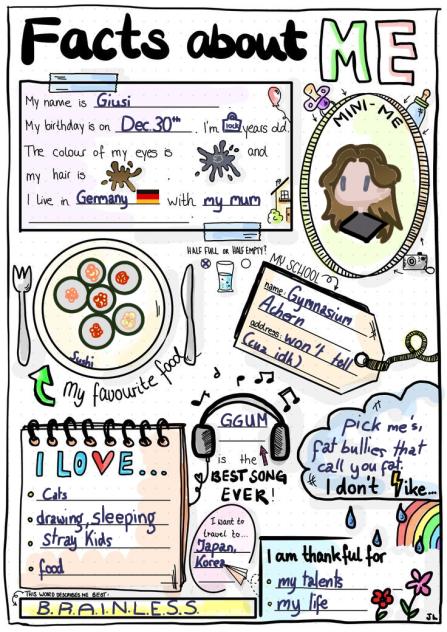 Facts about ME
My name is Giusi
My birthday is on Dec. 30th. I'm lock years old.
The colour of my eyes is and
my hair is
I live in Germany with my mum
MINI-ME
HALF FULL or HALF EMPTY?
MY SCHOOL
name: Gymnasium
Achern
address: won't tell
(cuz idk)
Sushi
My favourite food
I LOVE...
Cats
drawing, sleeping
Stray Kids
food
GGUM
is the
BEST SONG
EVER!
Pick me's,
fat bullies that
call you fat.
I don't like...
I want to
travel to...
Japan,
Korea
I am thankful for
my talents
my life
THIS WORD DESCRIBES ME BEST:
B.R.A.I.N.L.E.S.S